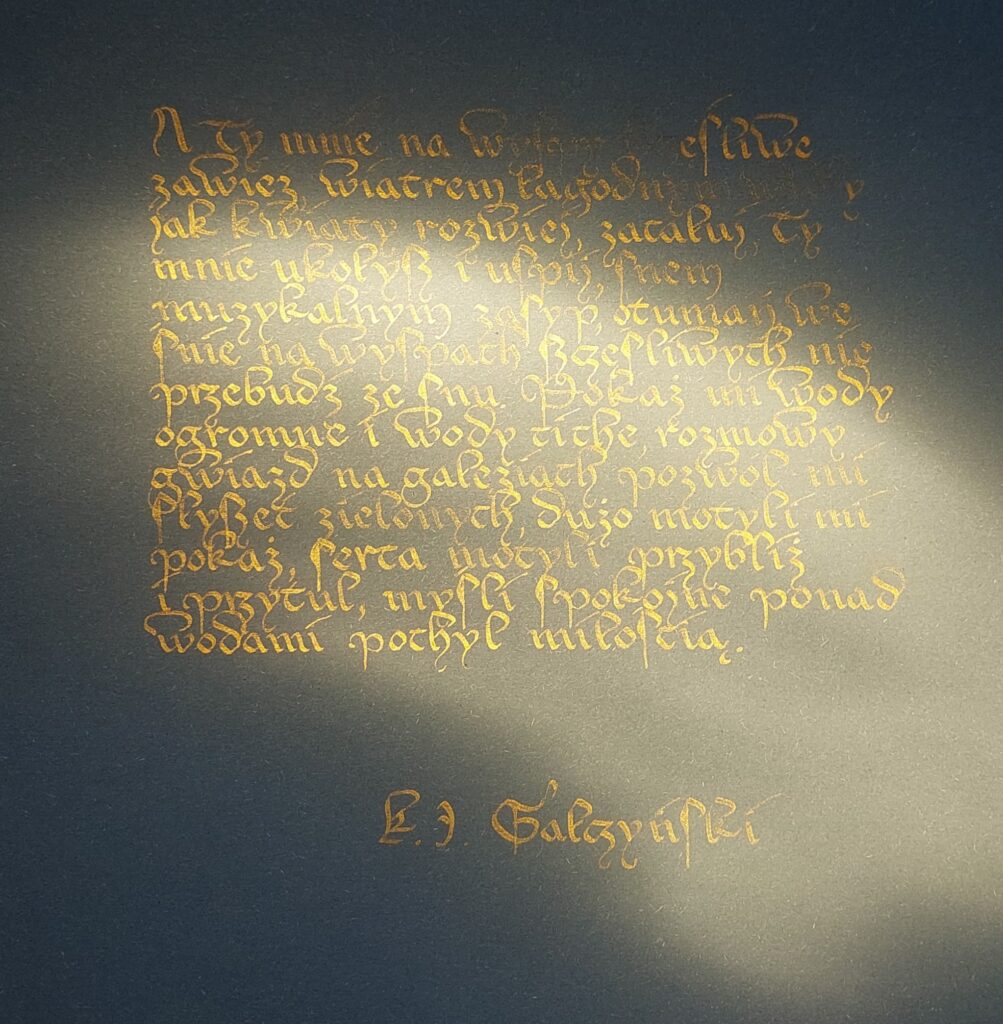 A Ty mnie na wyspy
zawieź, wiatrem łagodnym włosy
jak kwiaty rozwiej, zacałuj, Ty
mnie ukołysz i uśpij, snem
muzykalnym zasyp, otumań we
śnie na wyspach szczęśliwych nie
przebudź ze snu. Pokaż mi wody
ogromne i wody ciche, rozmowy
gwiazd na gałęziach pozwól mi
słyszeć zielonych, dużo motyli mi
pokaż, serca motyli przybliż
i przytul, myśli spokojne ponad
wodami pochyl miłością.
K. I. Gałczyński